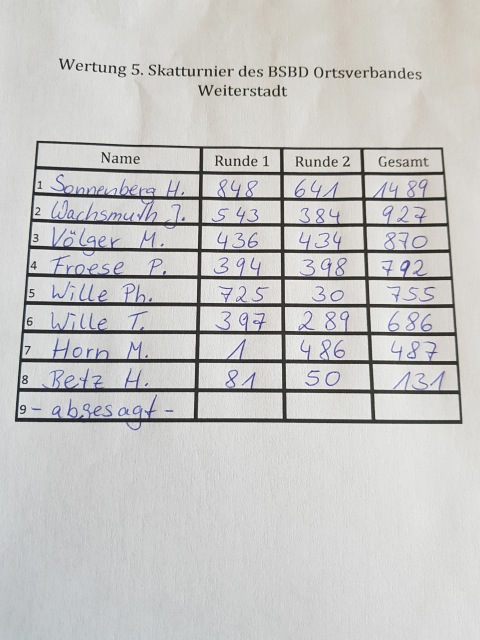 Wertung 5. Skatturnier des BSBD Ortsverbandes
Weiterstadt
Name Runde 1 Runde 2 Gesamt
1 Sonnenberg H. 848 641 1489
2 Wachsmuth J. 543 384 927
3 Völger M. 436 434 870
4 Froese P. 394 398 792
5 Wille Ph. 725 30 755
6 Wille T. 397 289 686
7 Horn M. 1 486 487
8 Betz H. 81 50 131
9 - abgesagt -